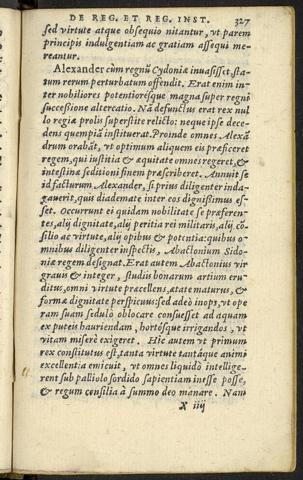 DE REG. ET REG. INST. 327
sed virtute atque obsequio nitantur, vt parem
principis indulgentiam ac gratiam assequi me-
reantur.
Alexander cùm regnũ Cydoniæ inuasisset, sta-
tum rerum perturbatum offendit. Erat enim in-
ter nobiliores potentioresque magna super regni
successione altercatio. Nã defunctus erat rex nul
lo regiæ prolis superstite relicto: neque ipse dece-
dens quempiã instituerat. Proinde omnes Alexã
drum orabãt, vt optimum aliquem eis præficeret
regem, qui iustitia & æquitate omnes regeret, &
intestinæ seditioni finem præscriberet. Annuit se
id facturum Alexander, si prius diligenter inda-
gauerit, quis diademate inter eos dignissimus es-
set. Occurrunt ei quidam nobilitate se præferen-
tes, alij dignitate, alij peritia rei militaris, alij cõ-
silio ac virtute, alij opibus & potentia: quibus o-
mnibus diligenter inspectis, Abactonium Sido-
niæ regem designat. Erat autem Abactonius vir
grauis & integer, studiis bonarum artium eru-
ditus, omni virtute præcellens, ætate maturus, &
formæ dignitate perspicuus: sed adeò inops, vt ope
ram suam sedulò oblocare consuesset ad aquam
ex puteis hauriendam, hortósque irrigandos, vt
vitam miserè exigeret. Hic autem vt primum
rex constitutus est, tanta virtute tantáque animi
excellentia emicuit, vt omnes liquidò intellige-
rent sub palliolo sordido sapientiam inesse posse,
& regum consilia à summo deo manare. Nam
X iiij